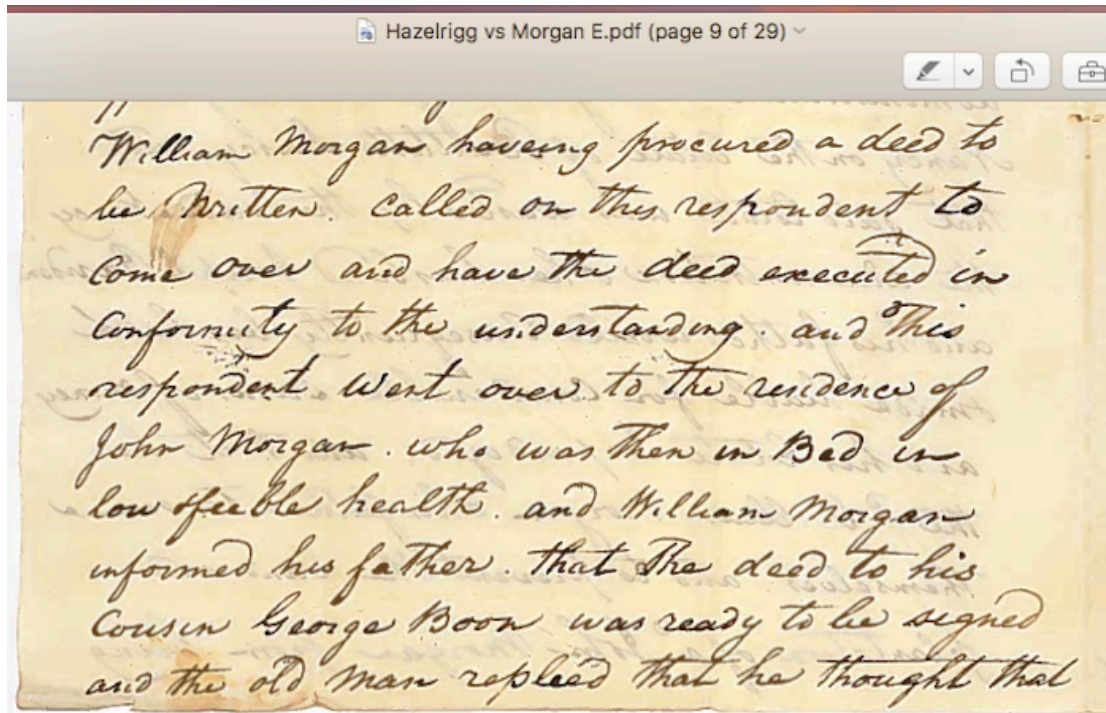 Hazelrigg vs Morgan E.pdf (page 9 of 29)
William Morgan haveing procured a deed to
be Written. Called on this respondent to
Come over and have the deed executed in
Conformity to the understanding. and This
respondent Went over to the residence of
John Morgan. who was then in Bed in
low feeble health. and William Morgan
informed his father. that The deed to his
Cousin George Boon was ready to be signed
and the old Man repleed that he thought that